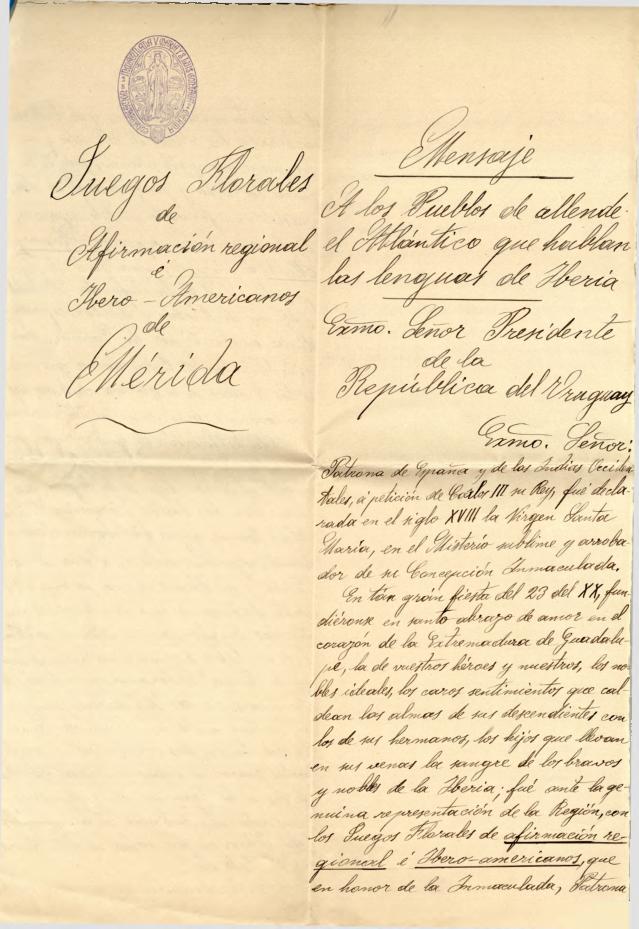 Juegos Florales
de
Afirmación regional
é
Ibero-Americanos
de
Mérida
Mensaje
A los Pueblos de allende
el Atlántico que hablan
las lenguas de Iberia
Exmo. Señor Presidente
de la
República del Uruguay
Exmo. Señor:
Patrona de España y de las Indias Occiden
tales, á petición de Carlos III su Rey, fué decla
rada en el siglo XVIII la Virgen Santa
María, en el Misterio sublime y arroba
dor de su Concepción Inmaculada.
En tan grán fiesta del 23 del XX, fun-
diéronse en santo abrazo de amor en el
corazón de la Extremadura de Guadalu-
pe, la de vuestros héroes y nuestros, los no
bles ideales, los caros sentimientos que cal-
dean las almas de sus descendientes con
los de sus hermanos, los hijos que llevan
en sus venas la sangre de los bravos
y nobles de la Iberia; fué ante la ge-
nuina representación de la Región, con
los Juegos Florales de afirmación re-
gional é Ibero-americanos, que
en honor de la Inmaculada, Patrona